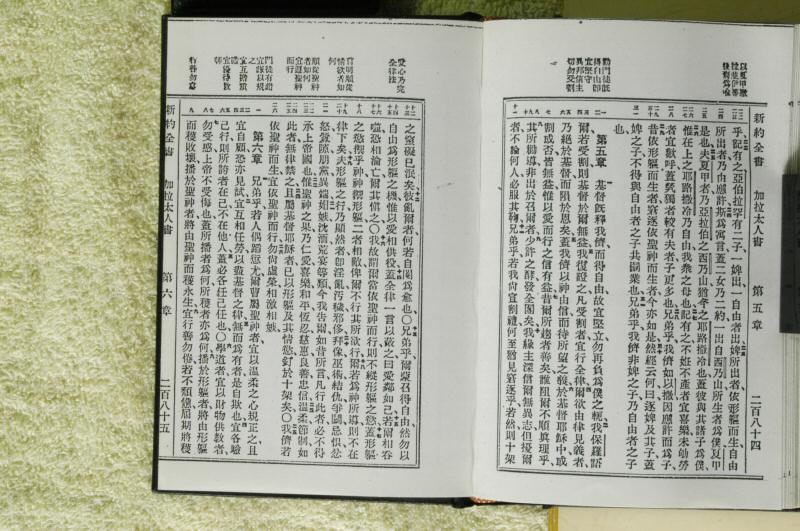 以夏甲撒
勸門徒旣
得自由卽
宜堅守
異邦信主
切勿受割
新約全書 加拉太人書 第五章 二百八十四
乎記有之亞伯拉罕有二子一婢出一自由者出婢所出者依形軀而生自由
所出者乃由應許斯爲寓言蓋二女乃二約一出自西乃山所生者爲僕夏甲
是也夫夏甲者乃亞拉伯之西乃山猶今之耶路撒冷也蓋彼與其諸子爲僕
惟在上之耶路撒冷乃自由我衆之母也記有之不姙不產者宜喜樂未劬勞
者宜歡呼蓋煢獨者較有夫者子更多也兄弟乎我儕如以撒因應許而爲子
昔依形軀而生者窘逐依聖神而生者今亦如是然經云何曰逐婢及其子蓋
婢之子不得與自由者之子共嗣業也兄弟乎我儕非婢之子乃自由者之子
也
第五章 基督旣釋我儕而得自由故宜堅立勿再負爲僕之軛我保羅語
爾若受割則基督於爾無益我復證之凡受割者宜行全律爾欲由律見義者
乃絕於基督而隕於恩矣蓋我儕以神由信而待所望之義於基督耶穌中或
割或否皆無益惟以愛而行之信有益昔爾所趨者善矣誰阻爾不順眞理乎
其所勸導非出於召爾者少許之酵發全團矣我緣主深信爾無異志但擾爾
者不論何人必服其鞫兄弟乎我尚宣割禮何至猶見窘逐乎若然則十架
愛心乃完
全律法
宜明順從
情欲者如
何
順從聖神
者如何
宜遵聖神
而行
門徒有過
宜以規
之
宜互擔重
宜優待敎
師
行善勿怠
之窒礙已泯矣彼亂爾者何若自閹爲愈也〇兄弟乎爾蒙召得自由然勿以
自由爲形軀之機惟以愛相供役蓋全律一言以蔽之曰愛鄰如己若爾相吞
噬恐相淪亡爾其愼之〇我故謂爾當依聖神而行則不縱形軀之慾蓋形軀
之慾拂乎神神拂形軀二者相敵俾爾不行其所欲行爾若爲神所導則不在
律下矣夫形軀之行乃顯然者卽淫亂汚穢邪侈拜像巫術結仇爭鬬忌恨忿
怒釁隙朋黨異端媢嫉沈湎荒宴等類今我告爾如昔所言凡行此者必不得
承上帝國也惟聖神之果乃仁愛喜樂和平恆忍慈惠良善忠信溫柔節制如
此者無律禁之且屬基督耶穌者已以形軀及其情慾釘於十架矣〇我儕若
依聖神而生宜依聖神而行勿尙虛榮相激相嫉
第六章 兄弟乎若人偶蹈愆尤爾曹屬聖神者宜以溫柔之心規正之且
宜自顧恐亦見試宜互相任勞以盡基督之律無而爲有者是自欺也宜各驗
己行則所誇者在己不在他人蓋必各任己任也〇學道者宜以財物供敎者
勿受惑上帝不受侮也蓋所播者爲何所穫者亦爲何播於形軀者將由形軀
而穫敗壞播於聖神者將由聖神而穫永生宜行善勿倦若不頹憊屆期將穫
新約全書 加拉太人書 第六章 二百八十五